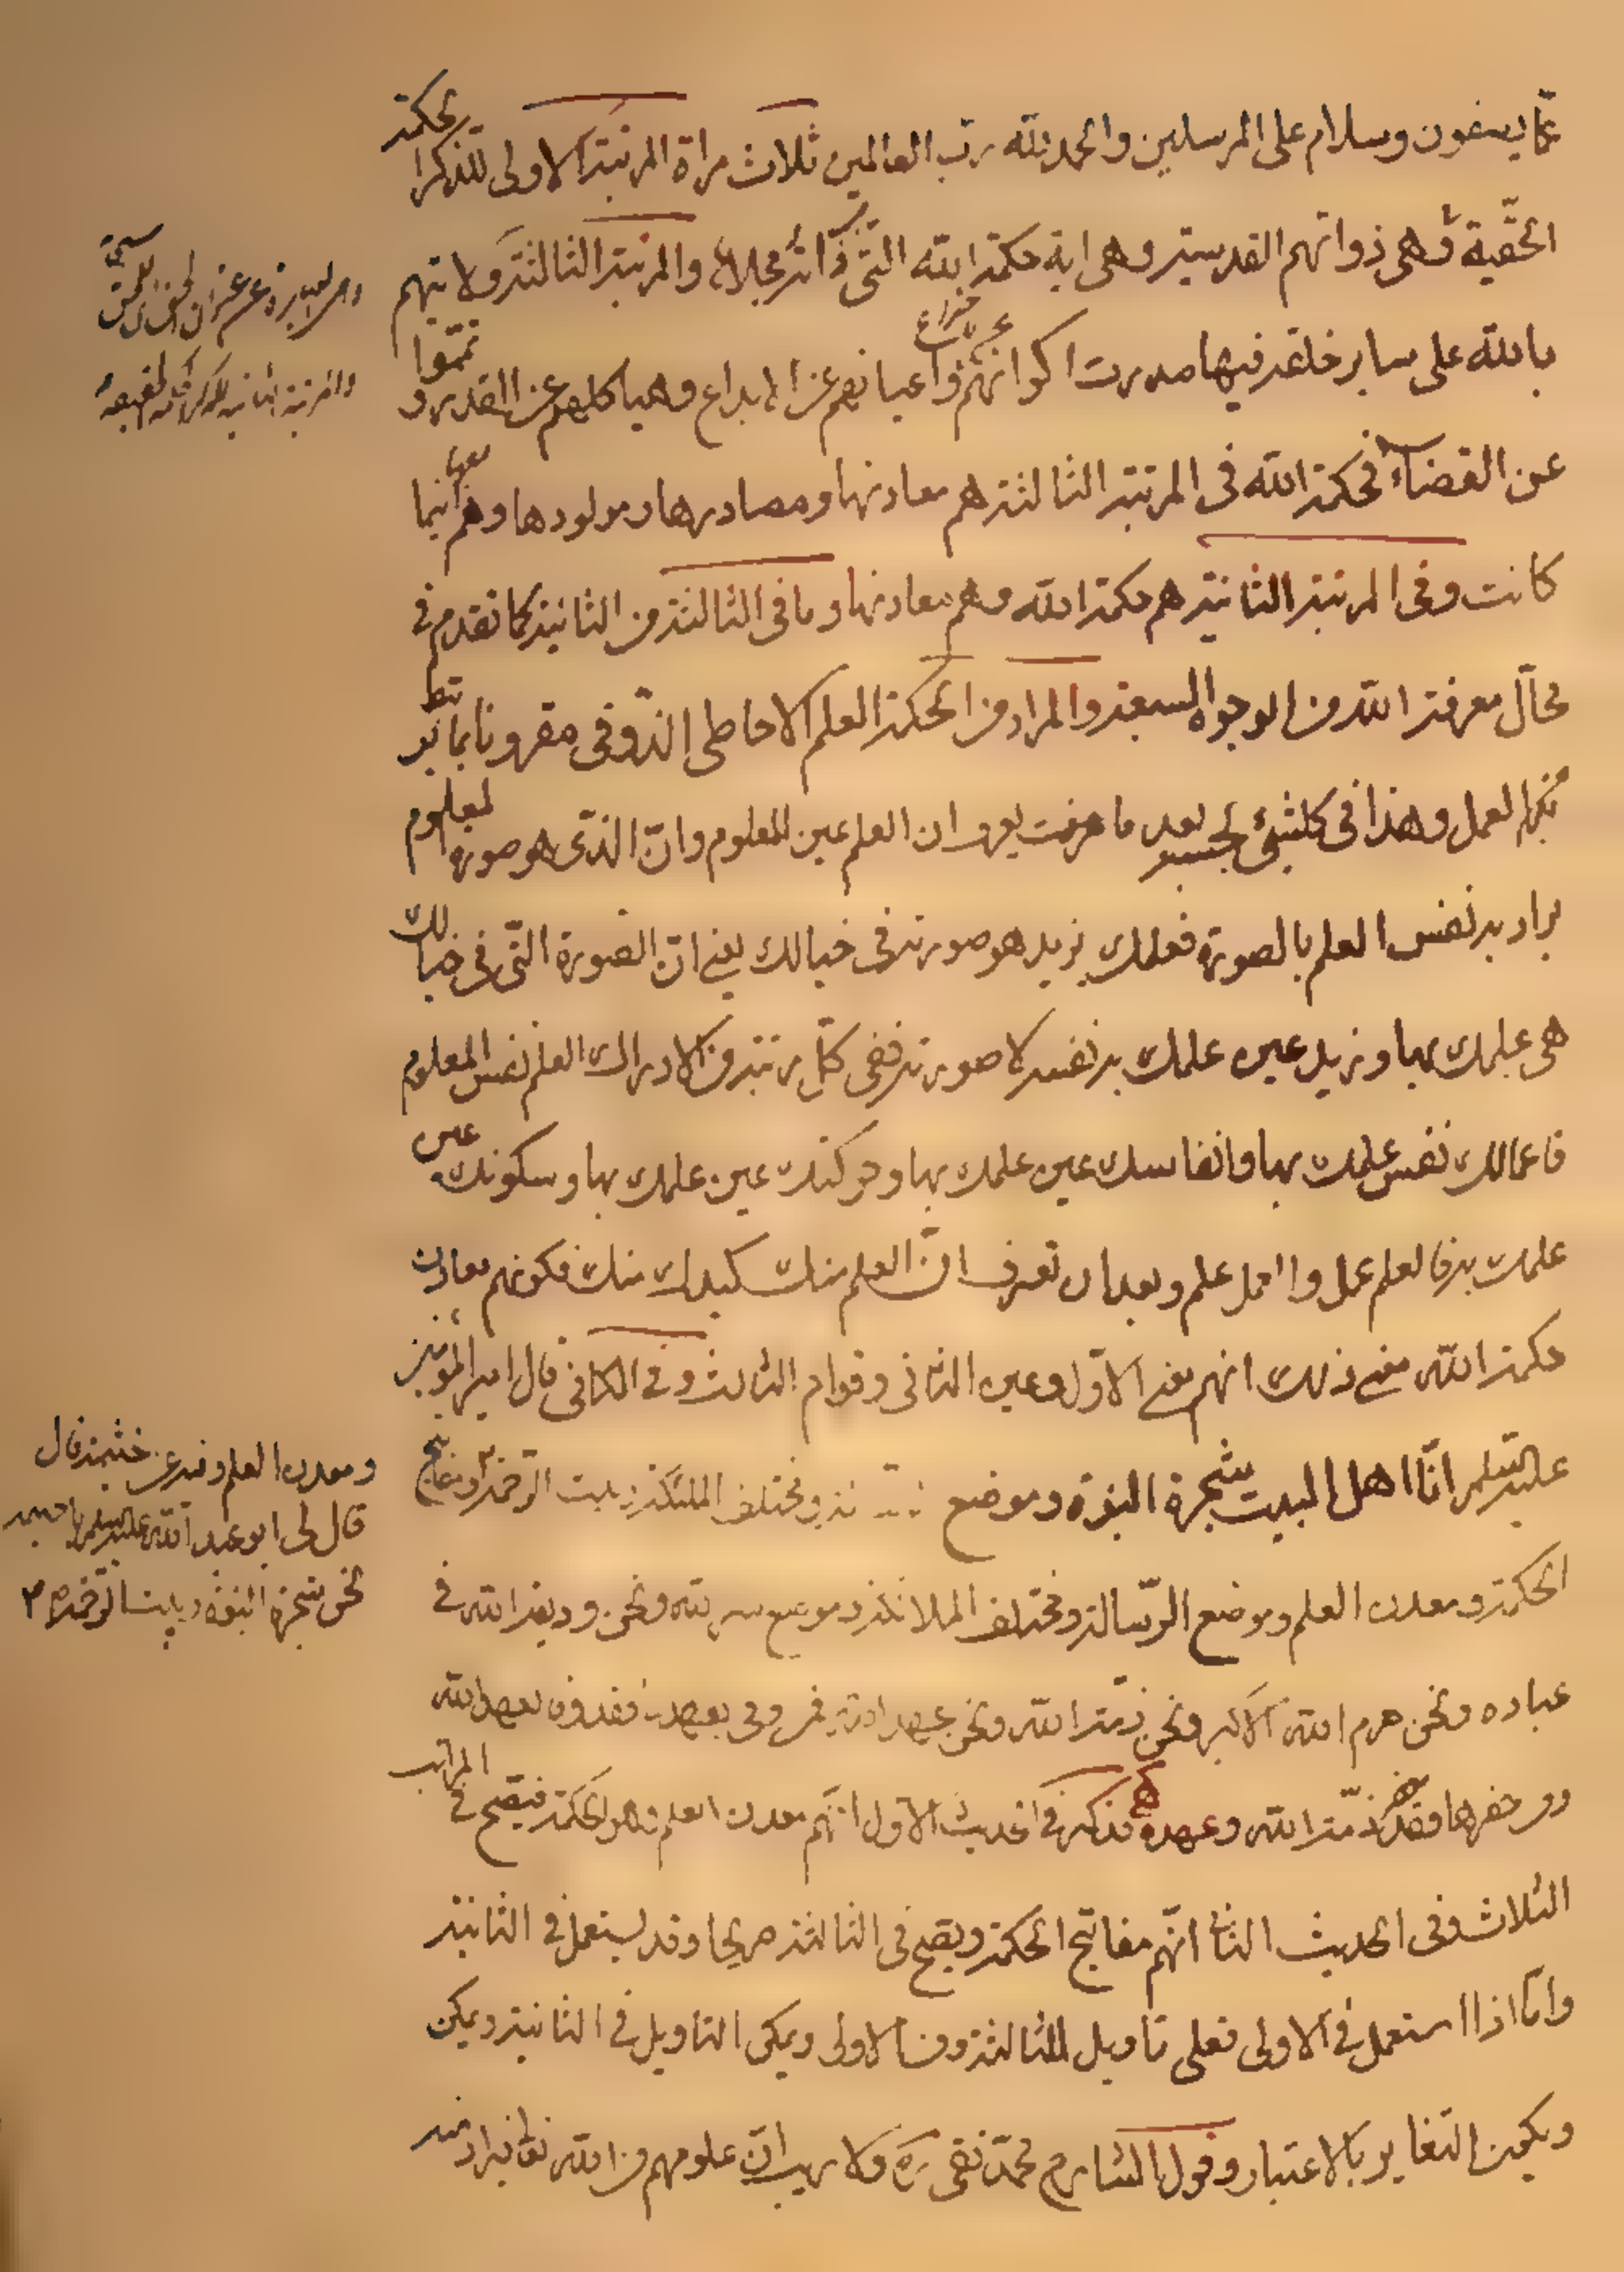 عما يصفون وسلام على المرسلين والحمد لله رب العالمين ثلاث مراة المرتبة الاولى للذكر الحكمة
الحقية وهى ذواتهم القدسية وهى اية حكمة الله التى ذاته والمرتبة الثالثة ولايتهم
بالله على ساير خلقه فيها صدرت اكوانهم واعيانهم عن الابداع وهياكلهم عن القدر و تمموا
عن القضاء فحكمة الله فى المرتبة الثالثة هم معادنها ومصادرها ومولودها وهم معها اينما
كانت وفى المرتبة الثانية هم حكمة الله وهم معادنها وما فى الثالثة من الثانية كما تقدم فى
محال معرفة الله من الوجوه السبعة والمراد من الحكمة العلم الاحاطى الذوقى مقرونا بما
العمل وهذا فى كلشئ بحسبه بعد ما عرفت ان العلم عين المعلوم وان الذى هو صورة المعلوم
يراد به نفس العلم بالصورة فعلمك بزيد هو صورته فى خيالك يعنى ان الصورة التى فى خيالك
هى علمك بها وزيد عين علمك به نفسه لا صورته ففى كل رتبة من الادراك العلم نفس المعلوم
فاعمالك نفس علمك بها وانفاسك عين علمك بها وحركتك عين علمك بها وسكونك عين
علمك به فالعلم عمل والعمل علم وبعد ان تعرف ان العلم منك كيدك منك فكونهم معادن
حكمة الله معنى ذلك انهم معنى الاول وعين الثانى وقوام الثالث وفى الكافى قال امير المؤمنين
عليه السلم انا اهل البيت شجرة النبوة وموضع ومختلف الملئكة وبيت الرحمة
ومعدن العلم وفيه عن خثيمة قال
قال لى ابو عبد الله عليه السلم يا خثيمة
نحن شجرة النبوة وبيت الرحمة ومفاتيح
الحكمة ومعدن العلم وموضع الرسالة ومختلف الملائكة وموضع سر الله ونحن وديعة الله فى
عباده ونحن حرم الله الاكبر ونحن ذمة الله ونحن عهد الله فمن وفى بعهدنا فقد وفى بعهد الله
ومن خفرها فقد خفر ذمة الله وعهده فذكر فى الحديث الاول انهم معدن العلم وهو الحكمة فيصح فى المراتب
الثلاث وفى الحديث الثانى انهم مفاتيح الحكمة ويصح فى الثالثة صريحا وقد يستعمل فى الثانية
واما اذا استعمل فى الاولى فعلى تاويل الثالثة من الاولى ويمكن التاويل فى الثانية ويمكن
ويكون التغاير بالاعتبار وقول الشارح محمد تقى ره ولا ريب ان علومهم من الله تعالى يراد منه